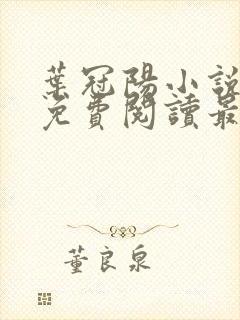 葉冠陽小說
免費閱讀最
董良泉